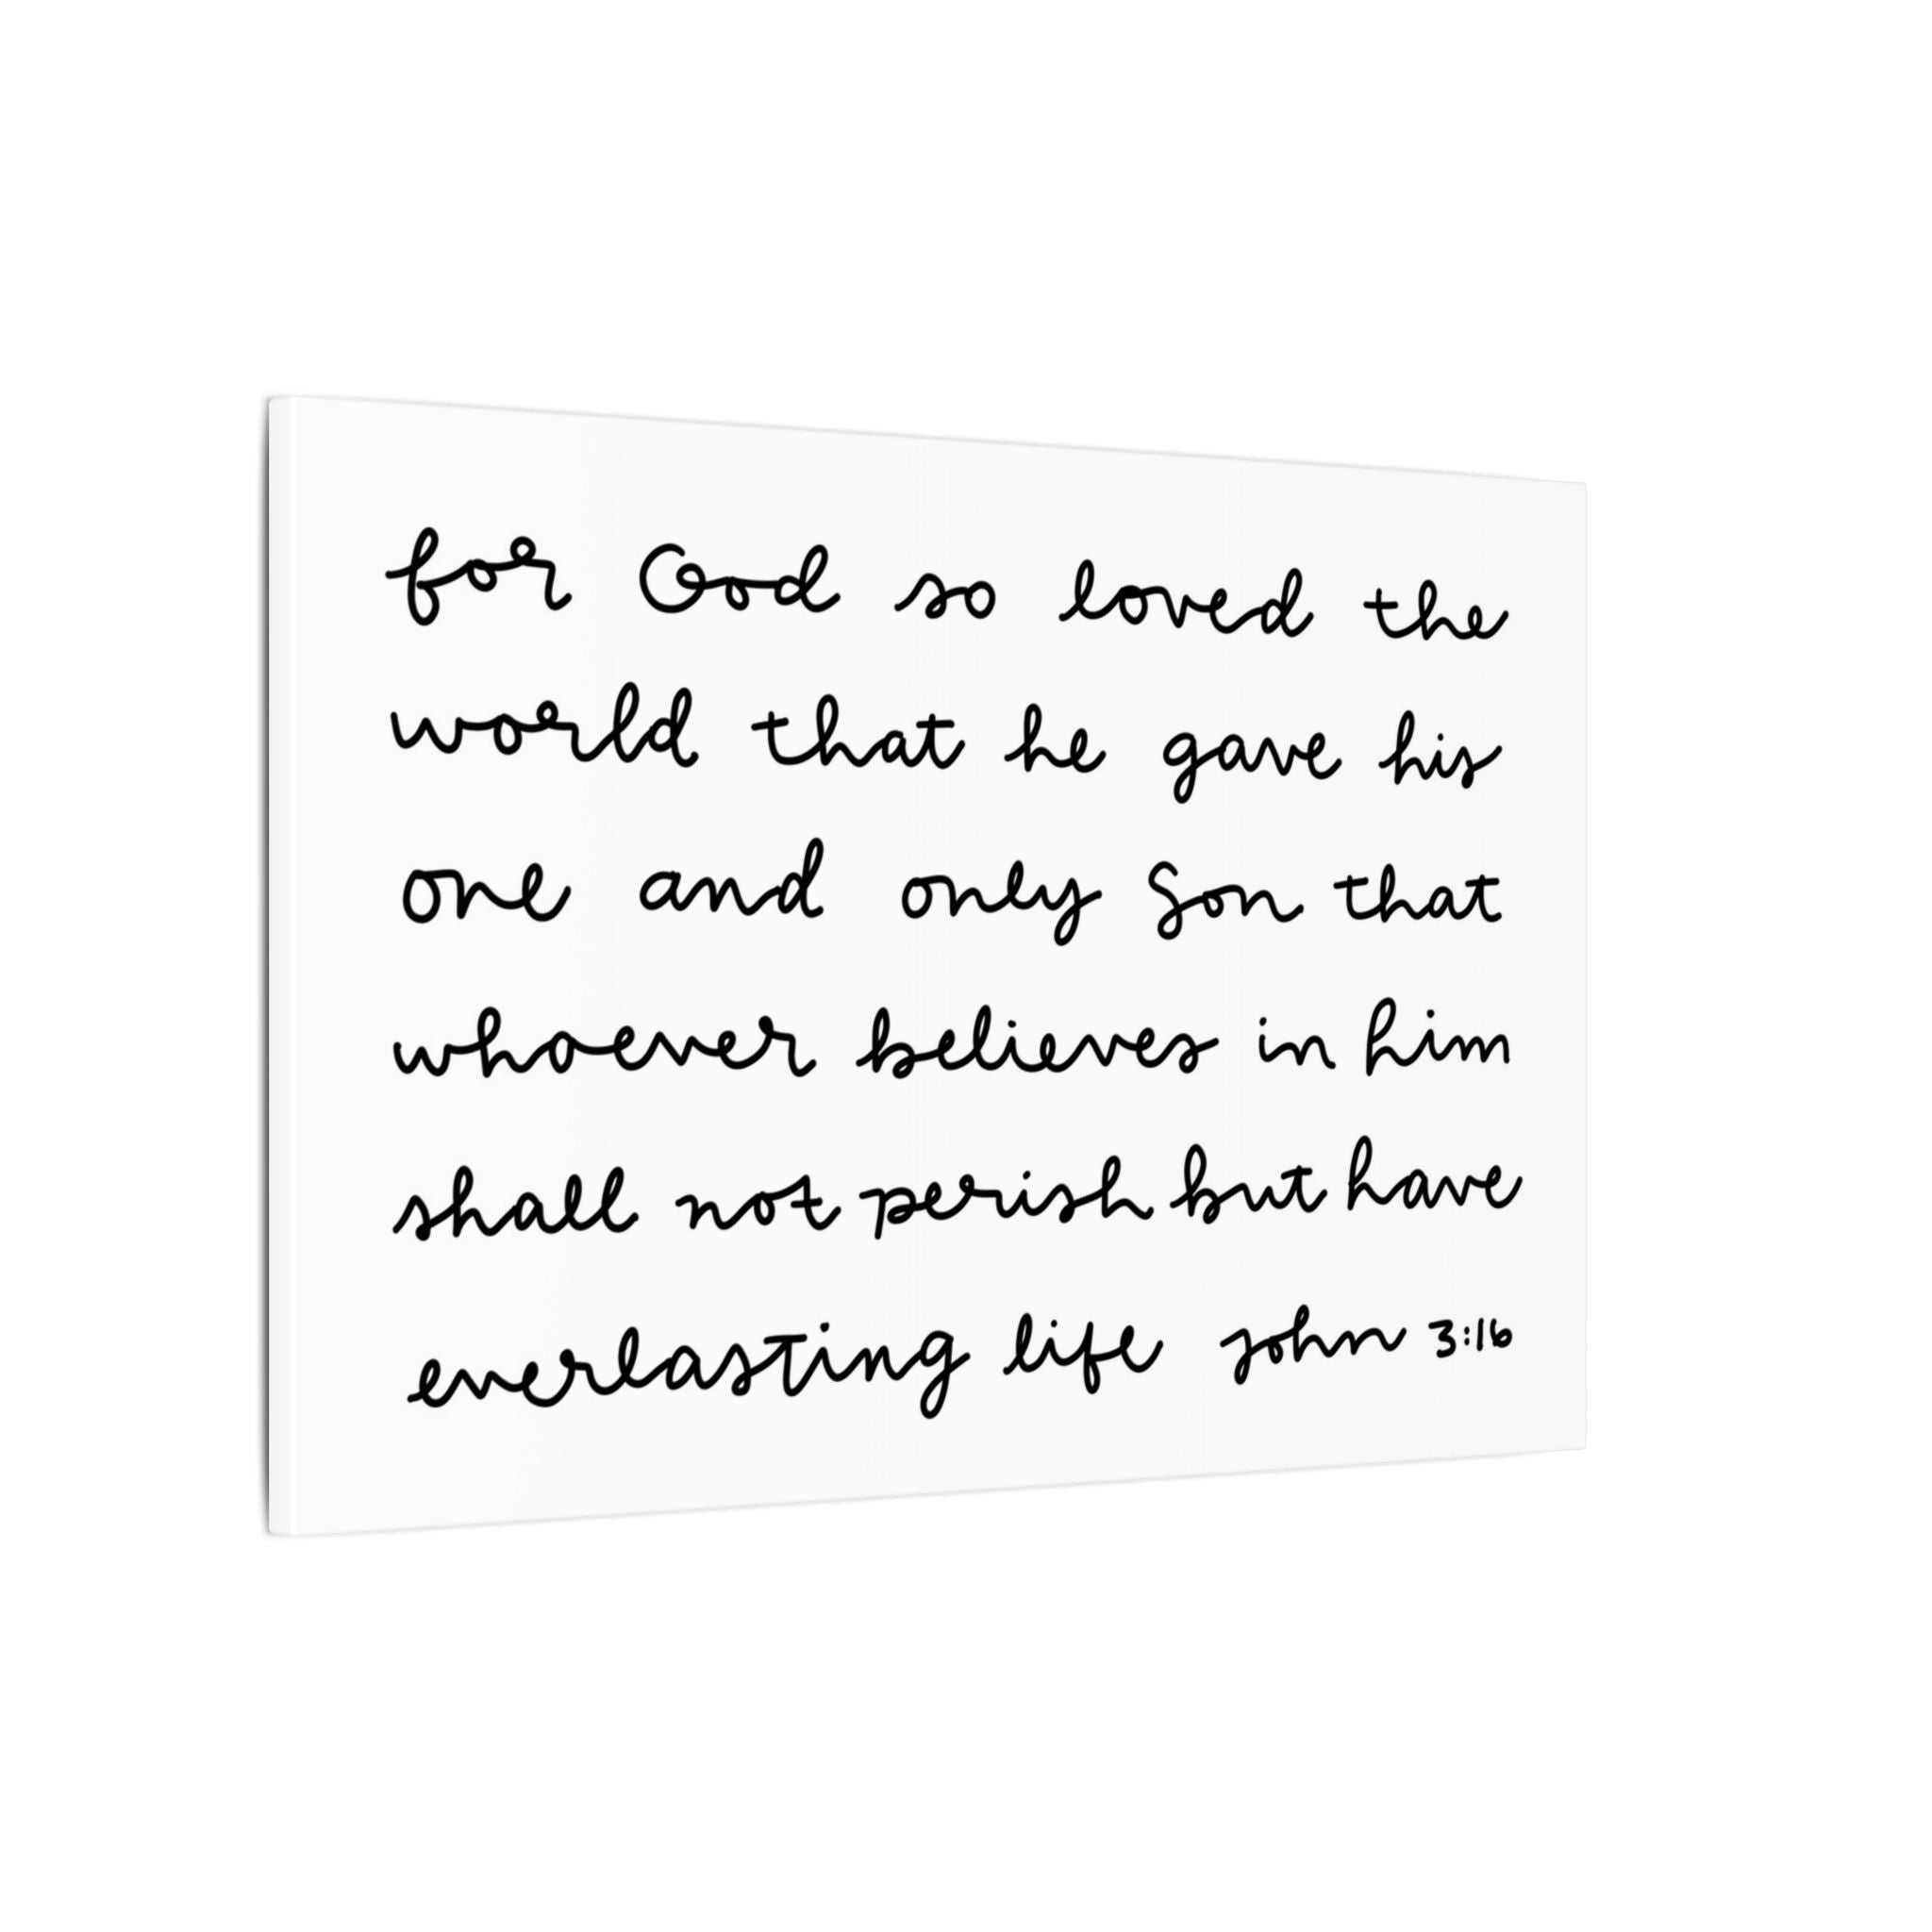 for God so loved the
world that he gave his
one and only Son that
whoever believes in him
shall not perish but have
everlasting life john 3:16